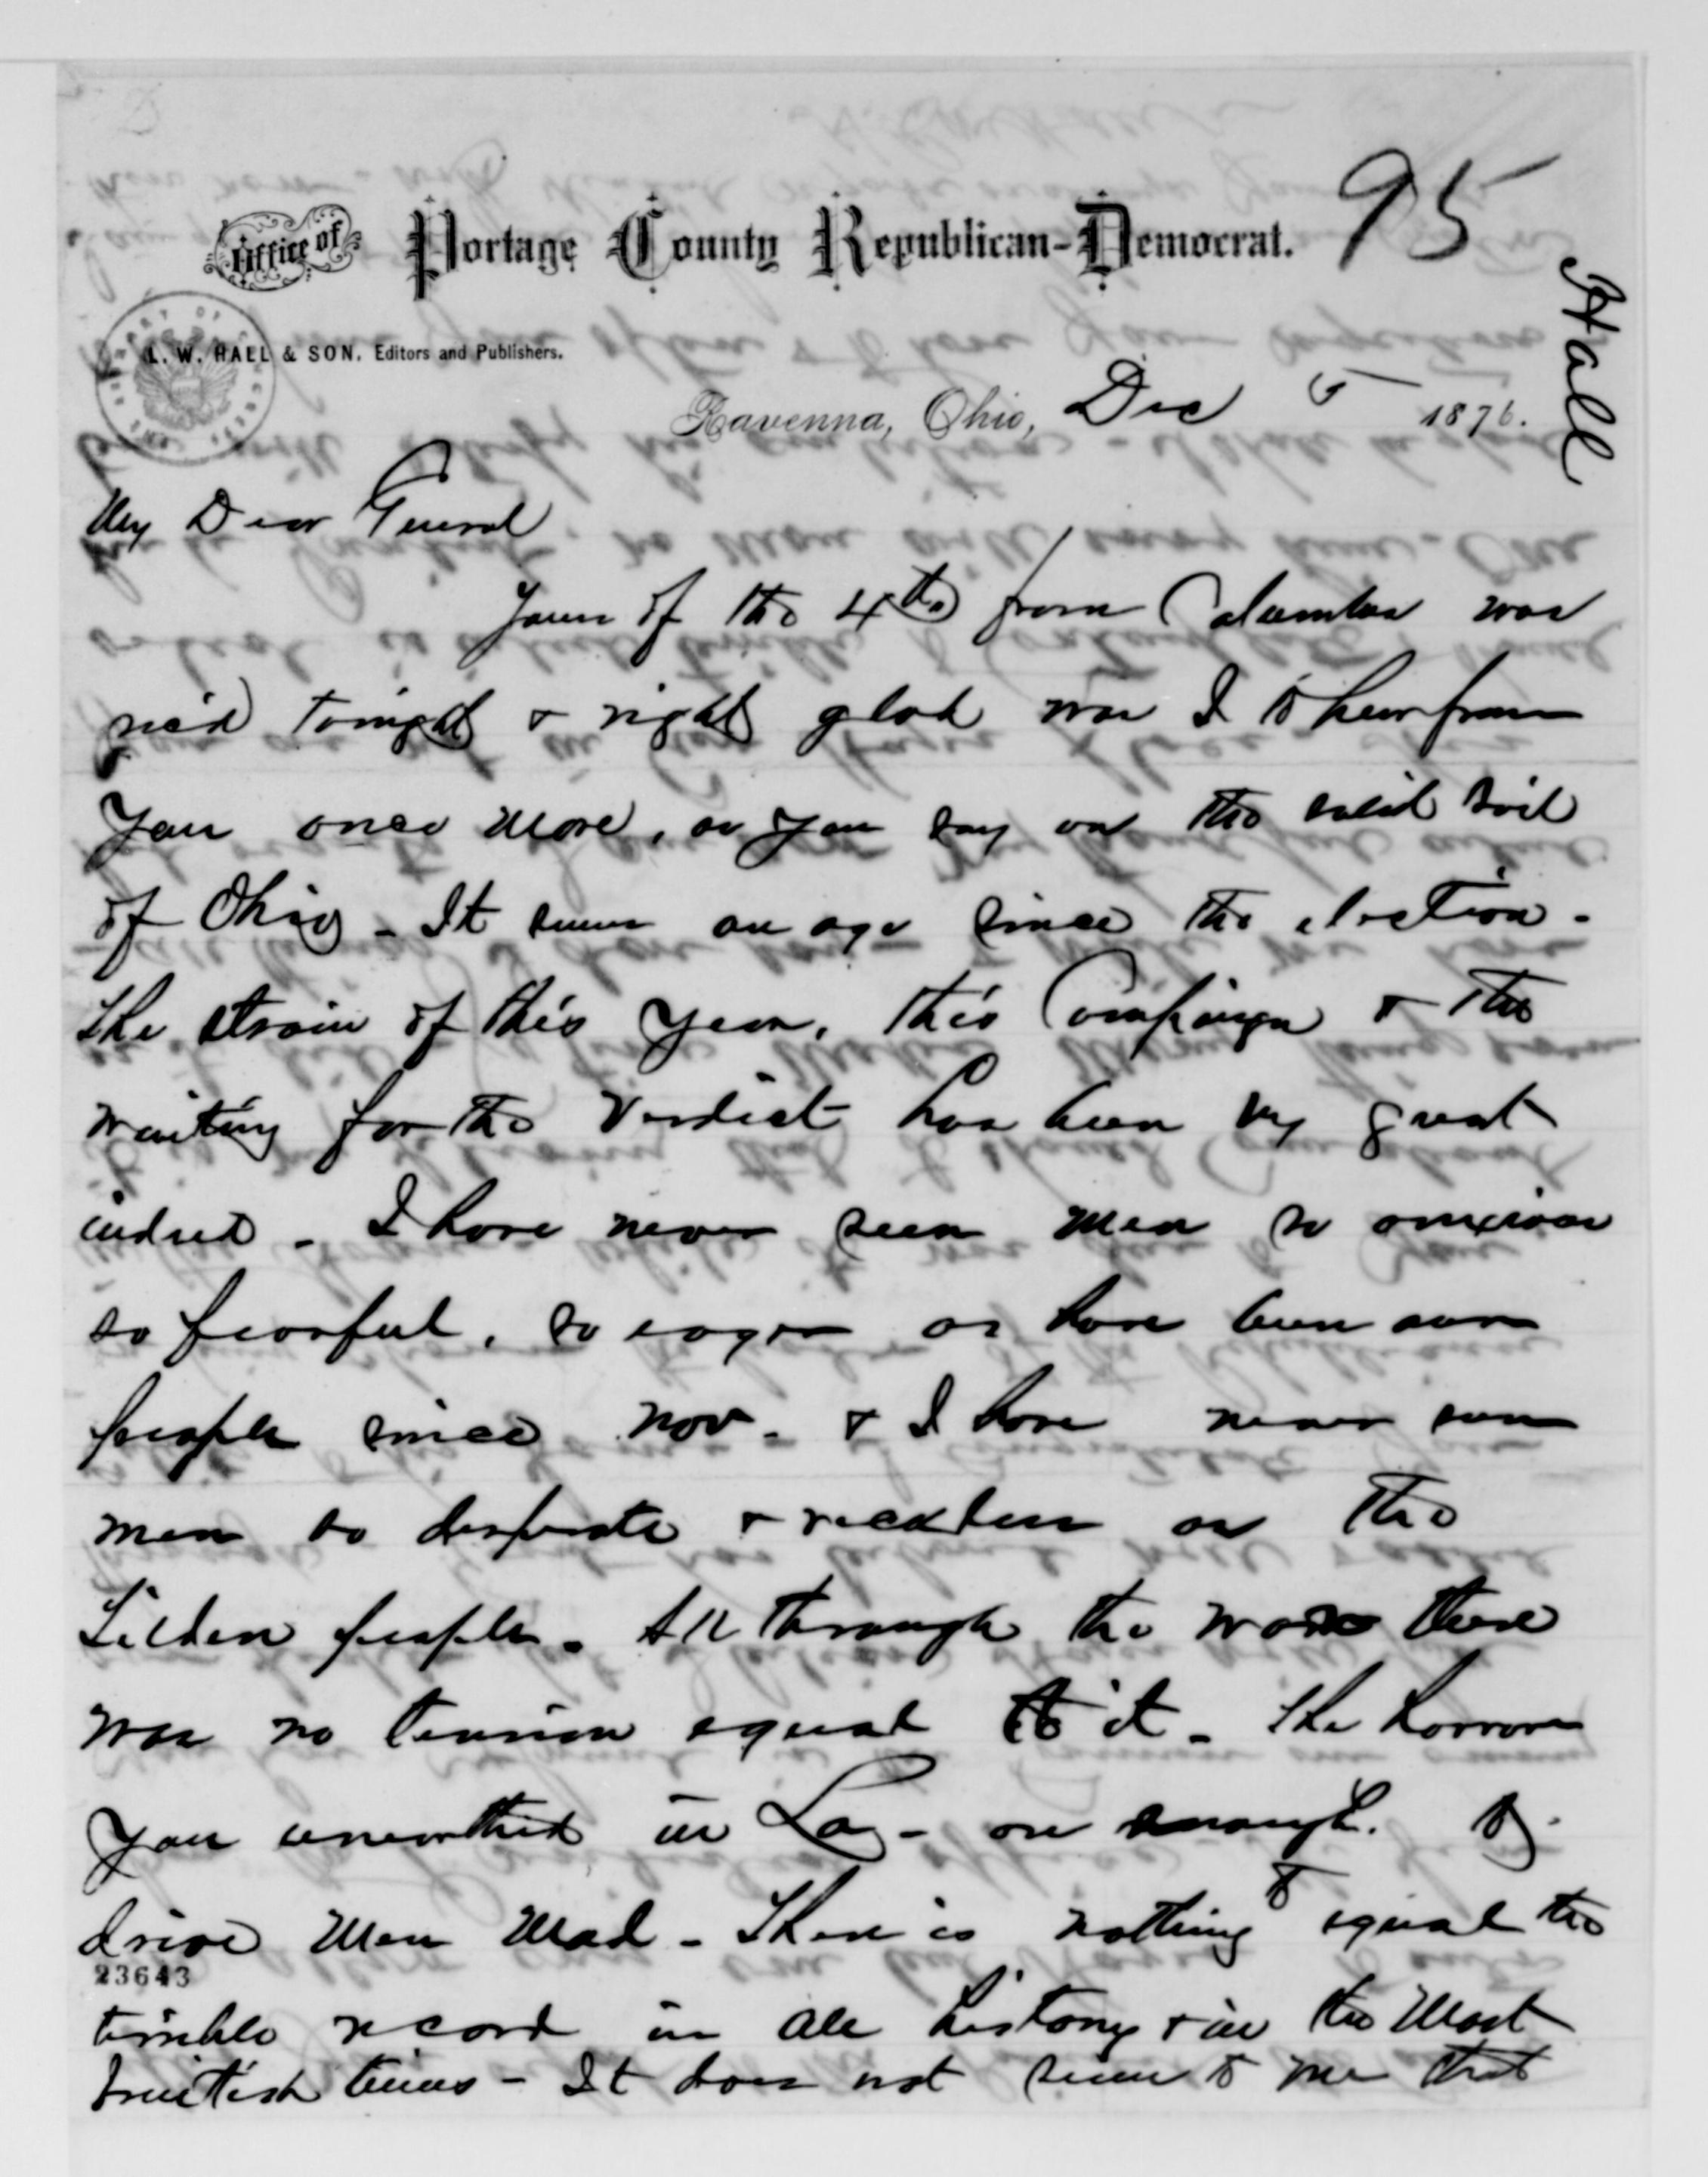 95
Hall
Office of Portage County Republican-Democrat.
L. W. HALL & SON, Editors and Publishers.
Ravenna, Ohio, Dec 5 1876.
My Dear General
Yours of the 4th from Columbus was
rec'd tonight & right glad was I to hear from
you once more, as you say on the solid soil
of Ohio - It seems an age since the election -
The strain of this year, this Campaign & the
waiting for the Verdict has been very great
indeed - I have never seen men so anxious
so fearful, so eager as have been our
people since Nov - & I have never seen
men so desperate & reckless as the
Tilden people - All through the war there
was no tension equal to it - The horrors
you unearthed in La - are enough to
drive men mad - There is nothing to equal the
terrible record in all history & in the most
brutish times - It does not seem to me that
23643